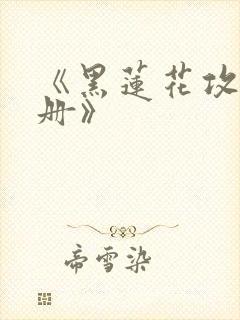 《黑蓮花攻
册》
帝雪染